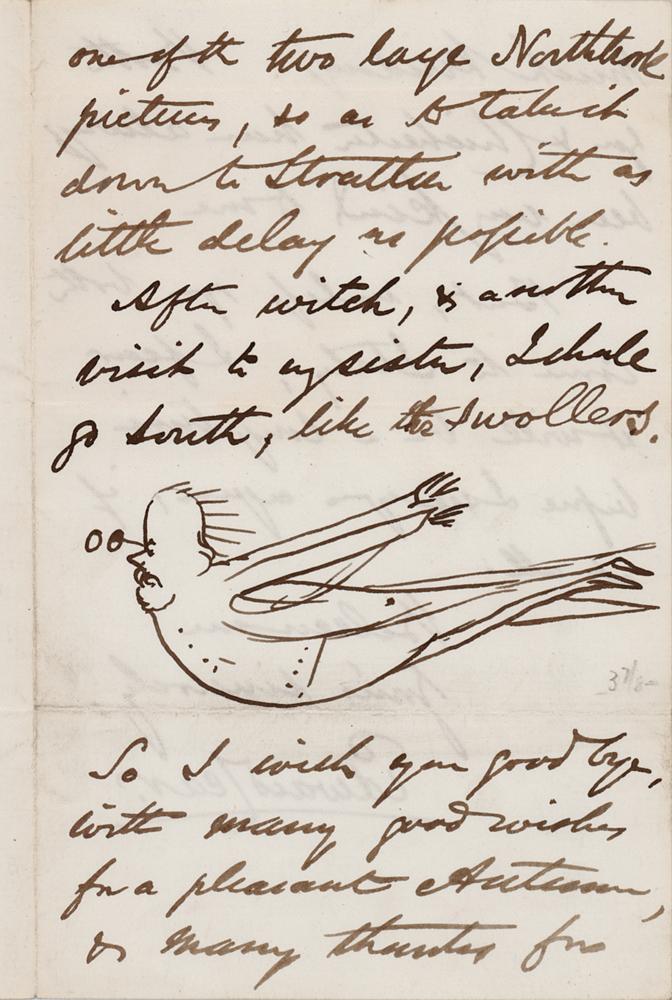 one of the two large Northbrook
pictures, so as to take it
down to Stratton with as
little delay as possible.
After witch, & another
visit to my sister, I shale
go South, like the Swollers.
So I wish you goodbye,
with many good wishes
for a pleasant Autumn,
& many thanks for